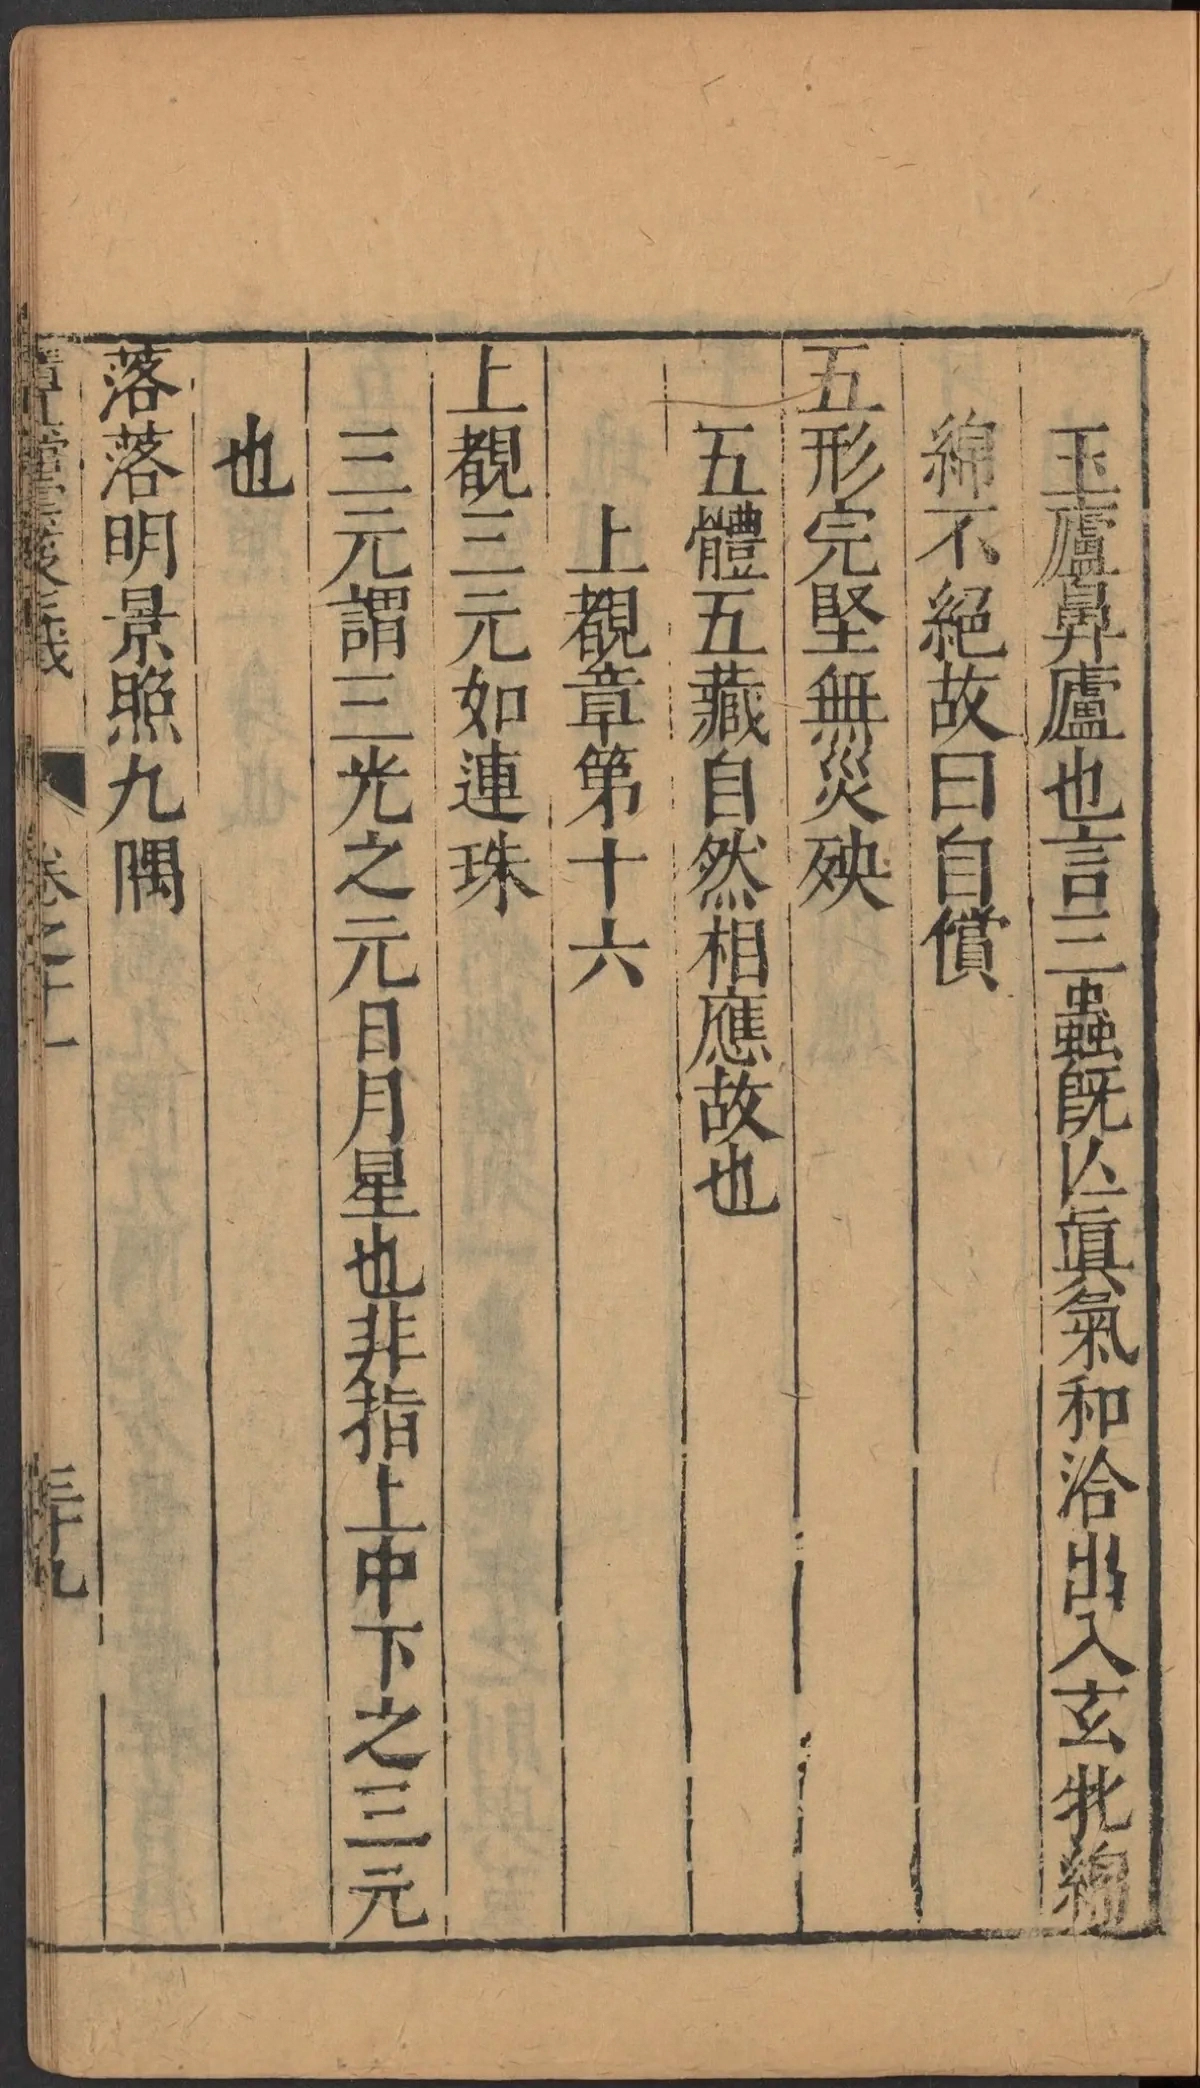 玉廬鼻廬也言三蟲既亾眞氣和洽出入玄牝綿
綿不絕故曰自償
五形完堅無災殃
五體五藏自然相應故也
上覩章第十六
上覩三元如連珠
三元謂三光之元日月星也非指上中下之三元
也
落落明景照九隅
卷之十一
三十九